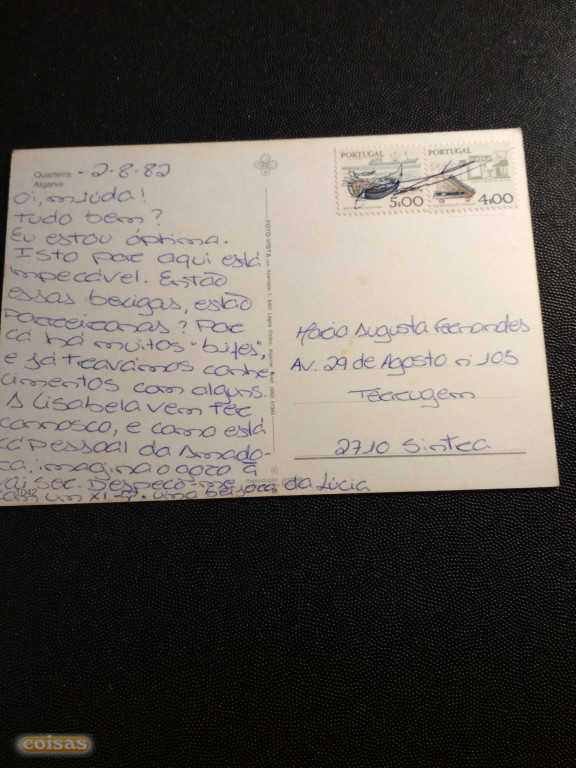 Quarteira - 2-8-82
Algarve
Oi, miúda!
Tudo bem?
Eu estou óptima.
Isto por aqui está
impecável. Então
essas bexigas, estão
porreiranas? Por
cá há muitos "bifes",
e já travámos conhe-
cimentos com alguns.
A Lisabela vem ter
connosco, e como está
cá pessoal da Amado-
ra, imagina o gozo q
vai ser. Despeço-me
com um xi-♡. uma beijoca da Lúcia
1042
PORTUGAL
5$00
PORTUGAL
4$00
FOTO-VISTA
Maria Augusta Fernandes
Av. 29 de Agosto nº 105
Terrugem
2710 Sintra
coisas